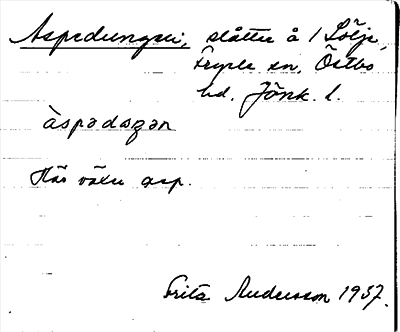 Aspedungen, slåtter å 1 Sölje,
Fryele sn, Östbo
hd. Jönk. l.
àspədɔŋən
Här växer asp.
Frita Andersson 1937.